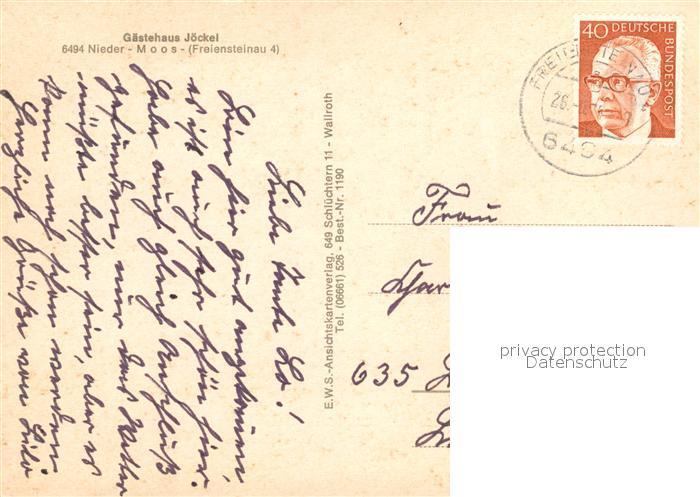 Gästehaus Jöckel
6494 Nieder - Moos - (Freiensteinau 4)
40 DEUTSCHE BUNDESPOST
6494
E.W.S.-Ansichtskartenverlag, 649 Schlüchtern 11 - Wallroth
Tel. (06661) 526 - Best.-Nr. 1190
Liebe Tante Lo!
Sind hier gut angekommen
es ist auch sehr schön hier.
Habe auch gleich Anschluß
gefunden, nur das Wetter
müßte besser sein, aber es
kann noch schön werden.
Herzliche Grüße von
Frau
Char
635
privacy protection
Datenschutz